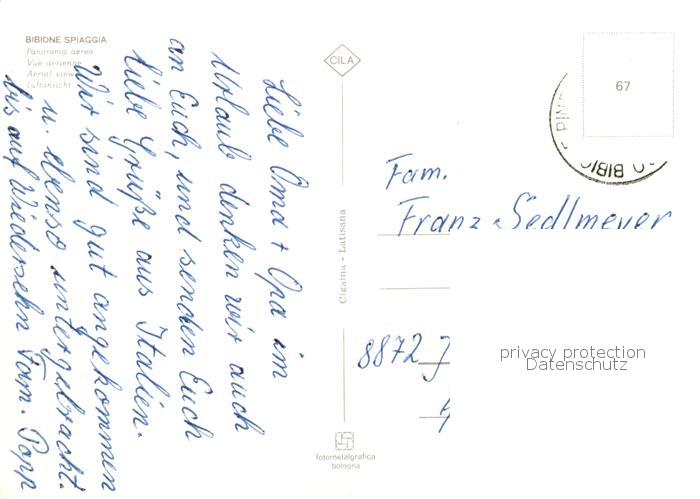 BIBIONE SPIAGGIA
Panorama aereo
Vue aerienne
Aerial view
Luftansicht
Liebe Oma + Opa im
Urlaub denken wir auch
an Euch, und senden Euch
liebe Grüße aus Italien.
Wir sind gut angekommen
u. ebenso untergebracht.
bis auf Wiedersehn Fam. Papp
CILA
Cigaina - Latisana
fotometalgrafica
bologna
67
BIBIO
Fam.
Franz Sedlmeyer
8872 J
privacy protection
Datenschutz